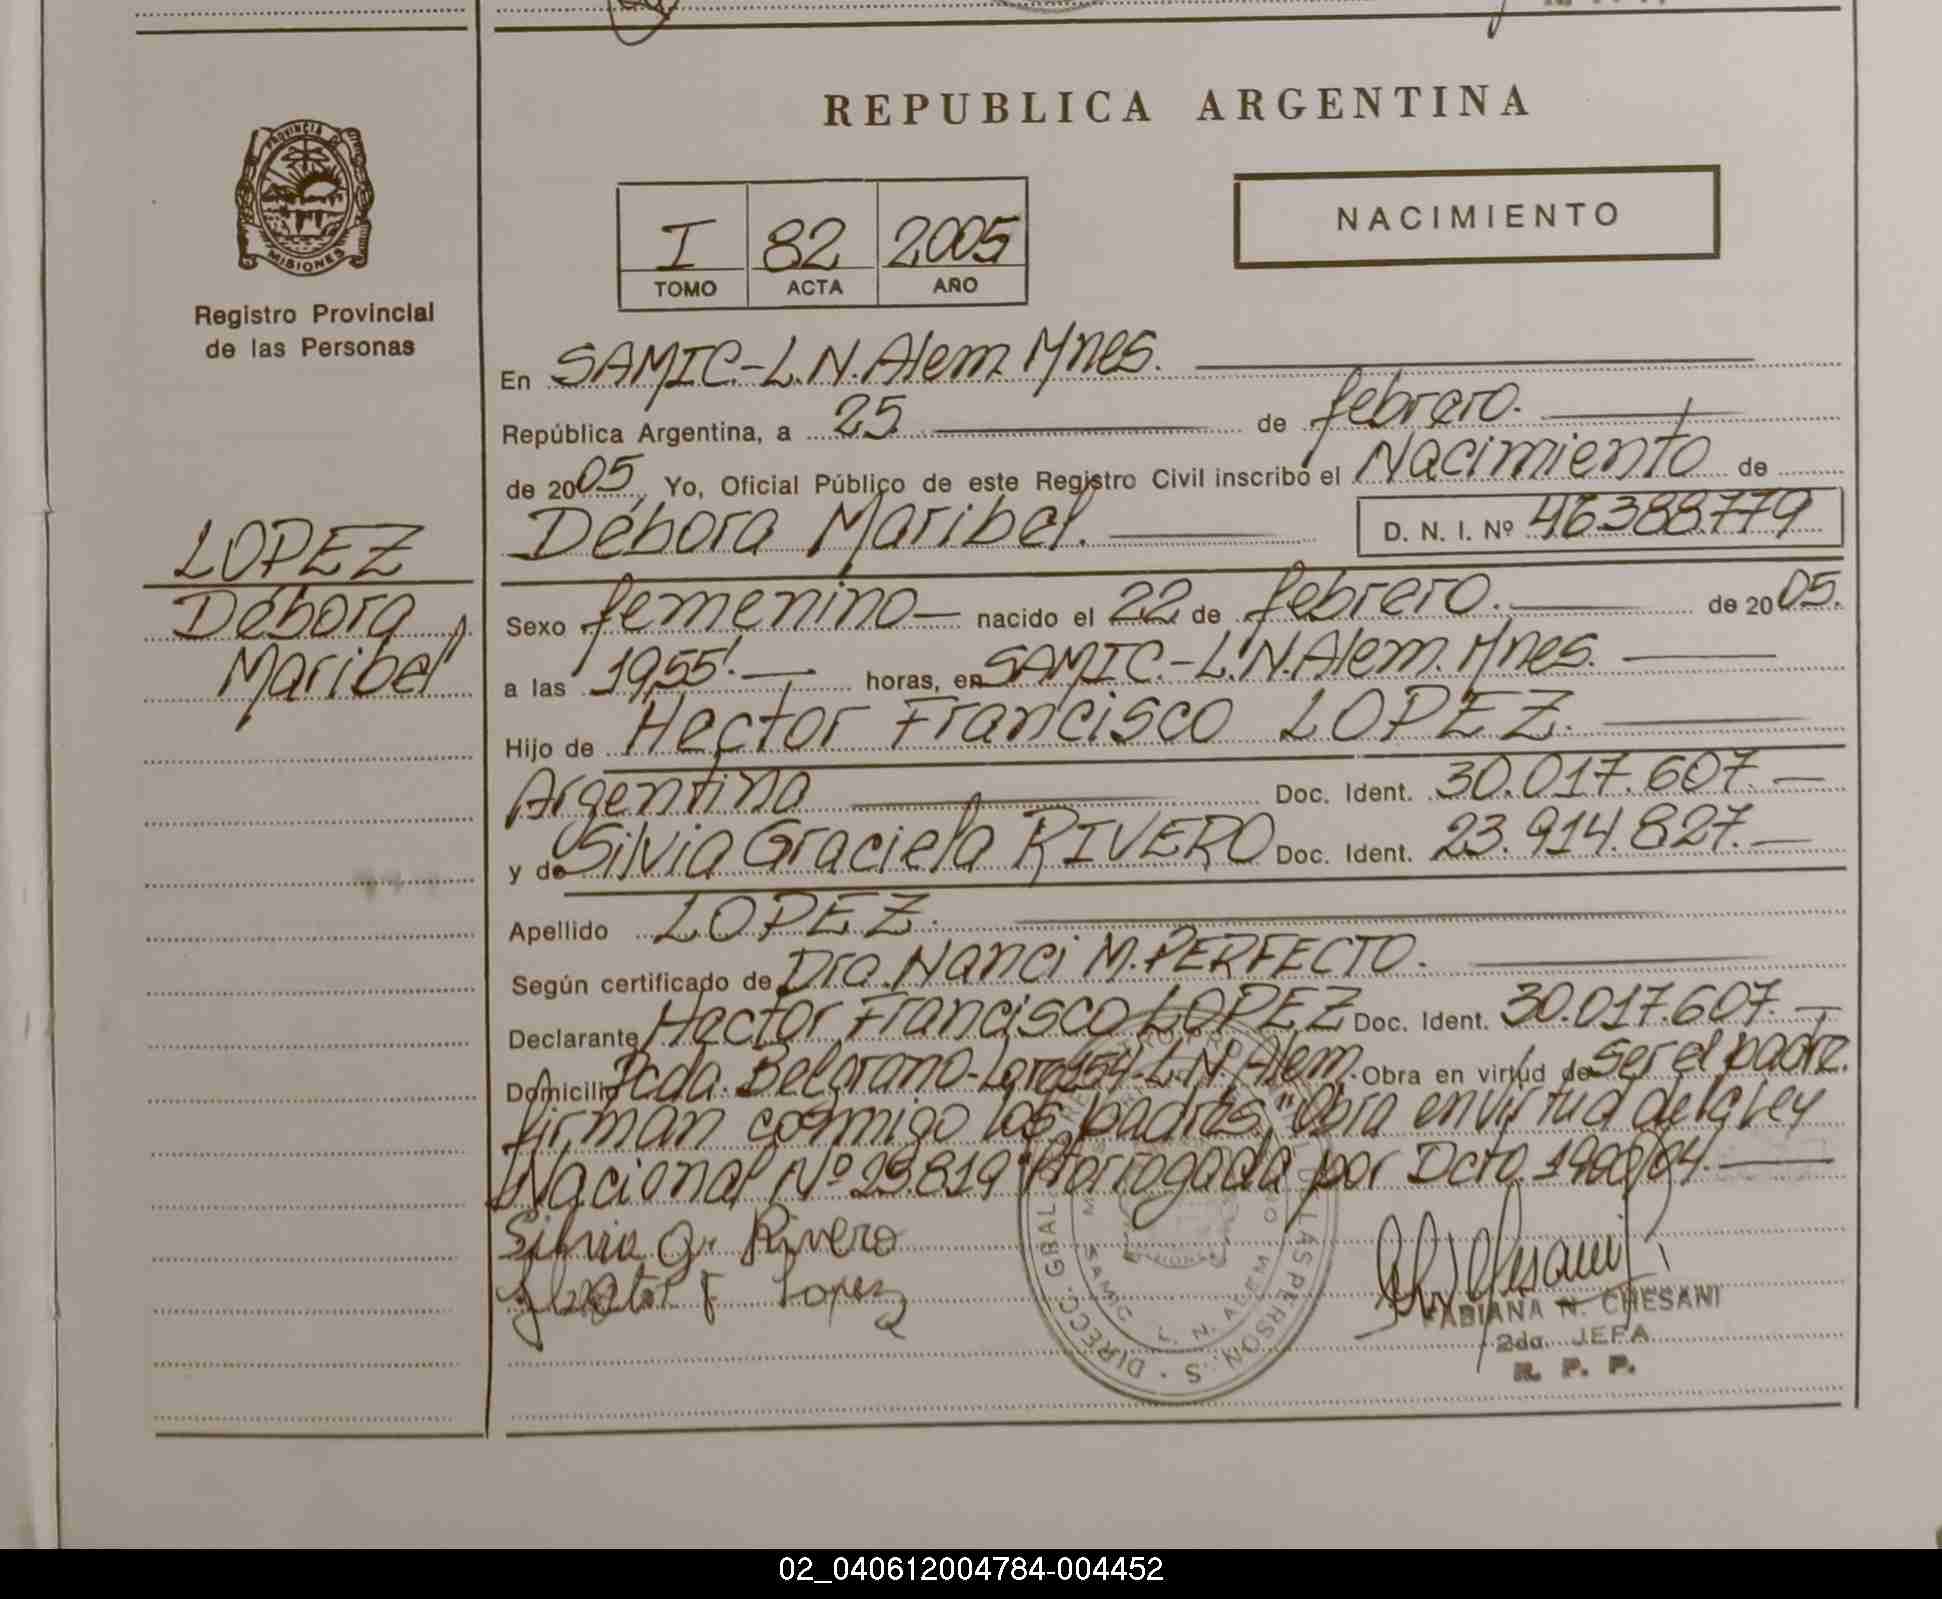 PROVINCIA DE
MISIONES
Registro Provincial
de las Personas
LOPEZ
Débora
Maribel
REPUBLICA ARGENTINA
I 82 2005
TOMO ACTA AÑO
NACIMIENTO
En SAMIC-L.N.Alem Mnes.
República Argentina, a 25 de febrero.
de 2005, Yo, Oficial Público de este Registro Civil inscribo el Nacimiento de
Débora Maribel. D. N. I. Nº 46.388.779
Sexo femenino nacido el 22 de febrero. de 2005.
a las 19,55'. horas, en SAMIC-L.N.Alem. Mnes.
Hijo de Hector Francisco LOPEZ.
Argentina Doc. Ident. 30.017.607.
y de Silvia Graciela RIVERO Doc. Ident. 23.914.827.
Apellido LOPEZ.
Según certificado de Dra. Nanci M. PERFECTO.
Declarante Hector Francisco LOPEZ Doc. Ident. 30.017.607.
Domicilio Pcda. Belgrano- 154-L.N.Alem. Obra en virtud de ser el padre.
firman conmigo los padres, "Obra en virtud de la Ley
Nacional Nº 25.819 Prorrogada por Dcto. 1900/04.
Silvia G. Rivero
Hector F Lopez
DIRECC. GRAL. LAS PERSON.S
SAMIC L. N. ALEM
FABIANA N. CHESANI
2da. JEFA
R. P. P.
02_040612004784-004452